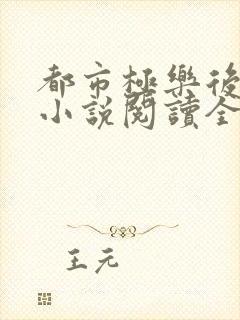 都市極樂後
小說閱讀全
王元